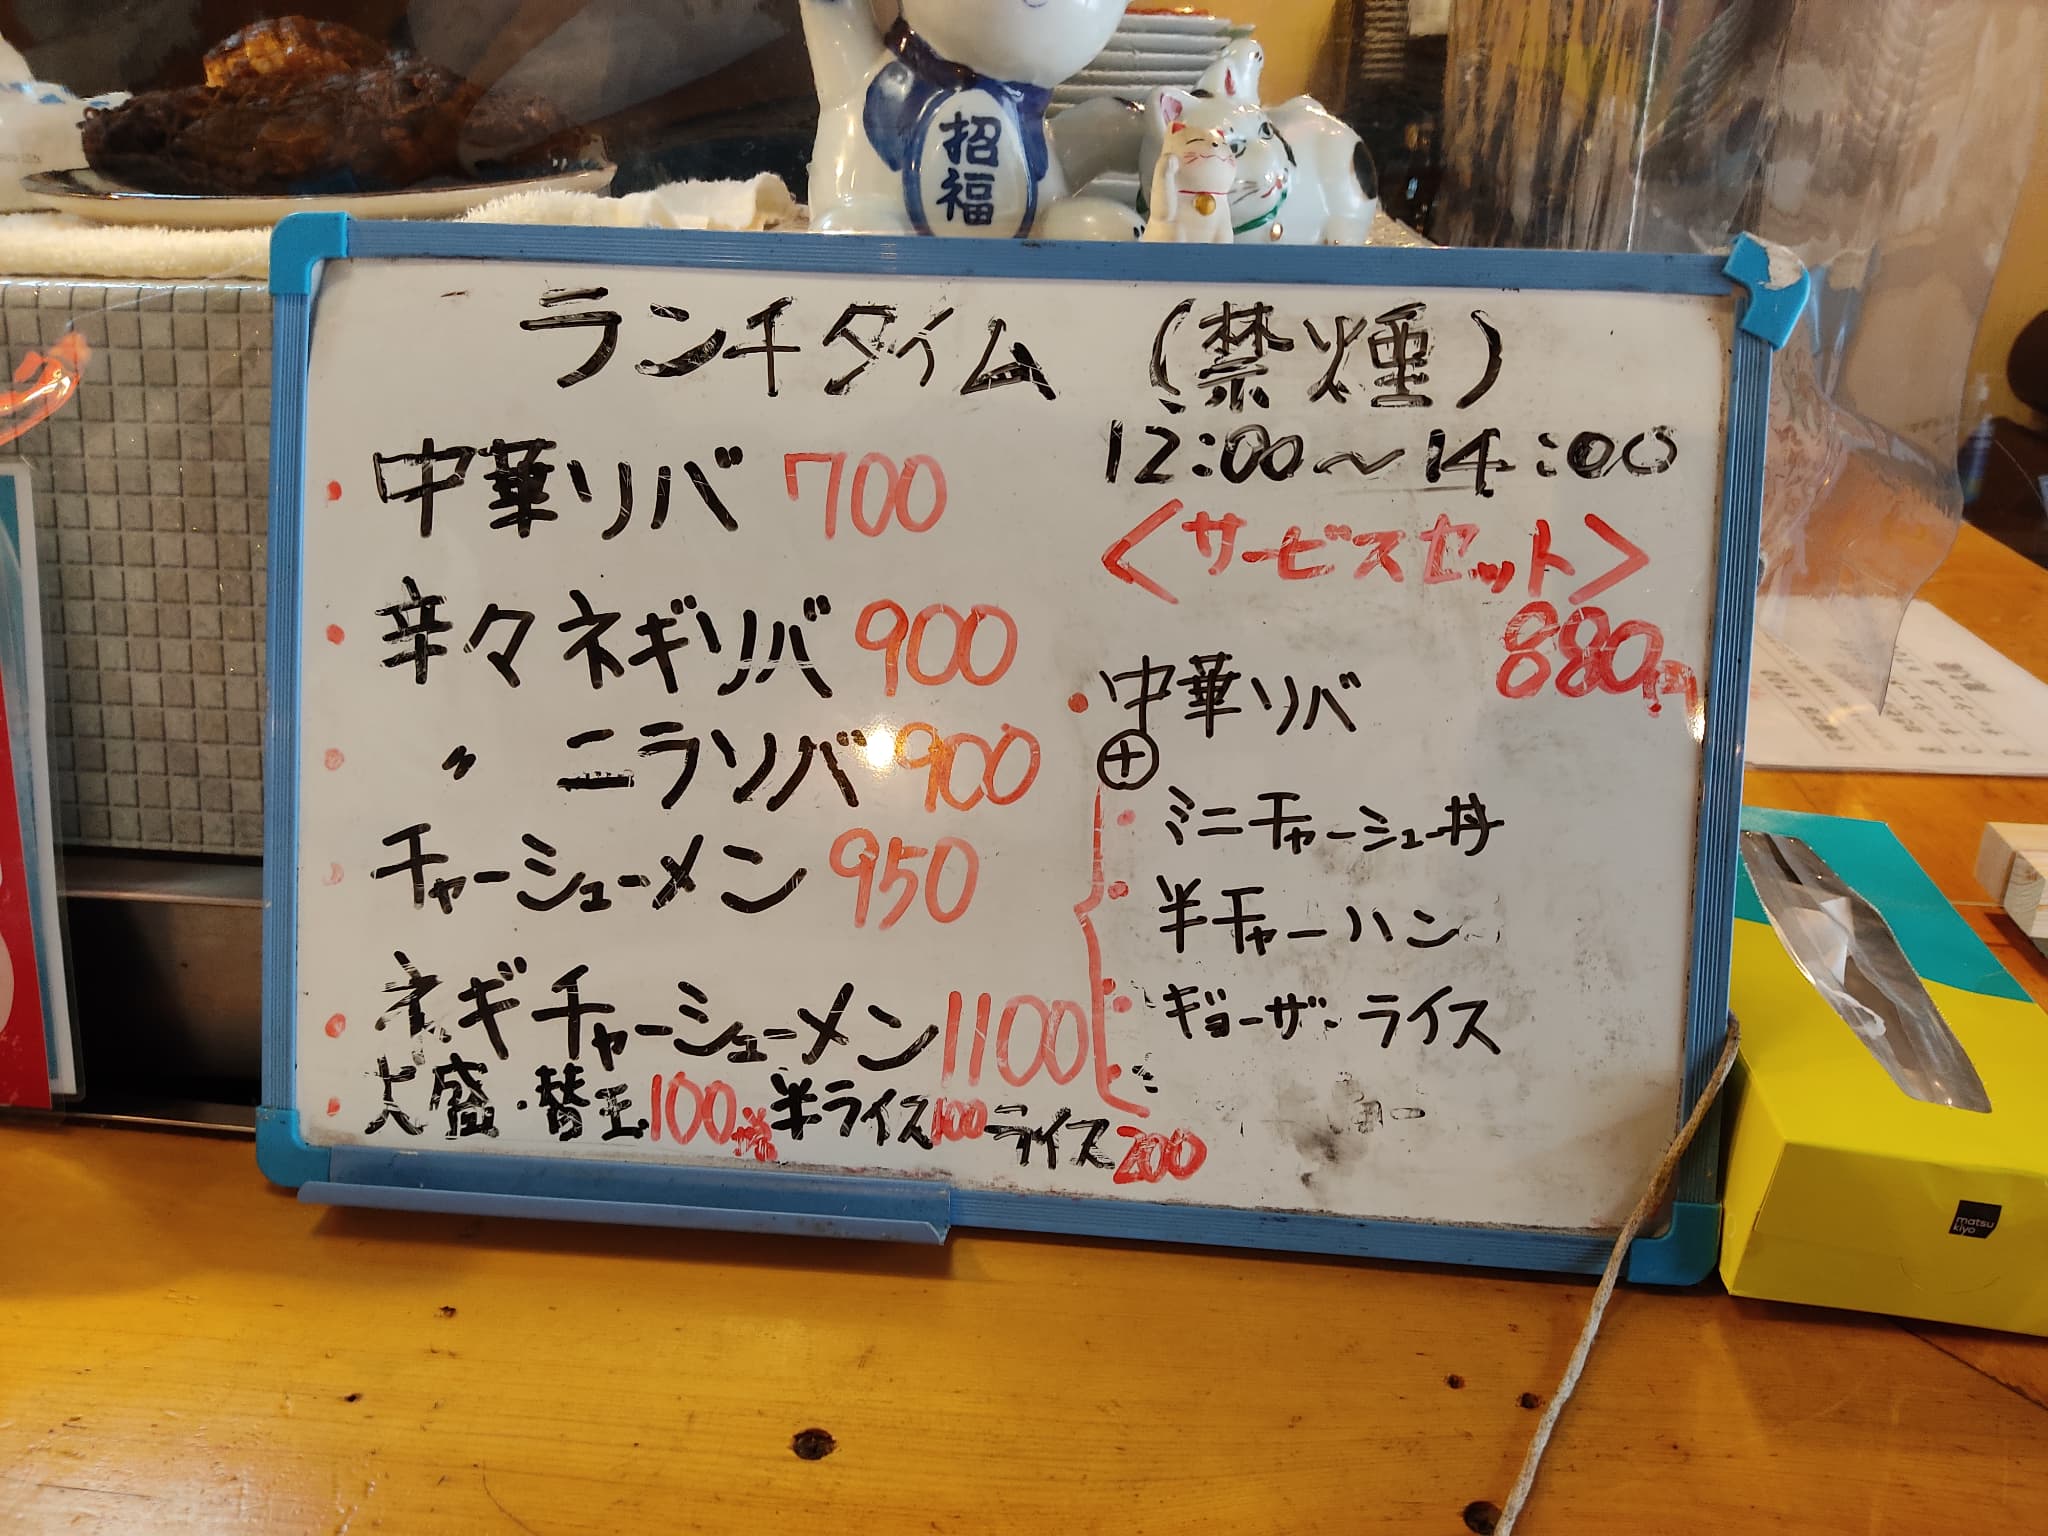 招福
ランチタイム (禁煙)
12:00〜14:00
・中華ソバ 700
・辛々ネギソバ 900
・〃 ニラソバ 900
・チャーシューメン 950
・ネギチャーシューメン 1100
・大盛・替玉100 半ライス100 ライス200
<サービスセット>
880円
・中華ソバ
⊕
・ミニチャーシュー丼
・半チャーハン
・ギョーザ・ライス
matsu
kiyo